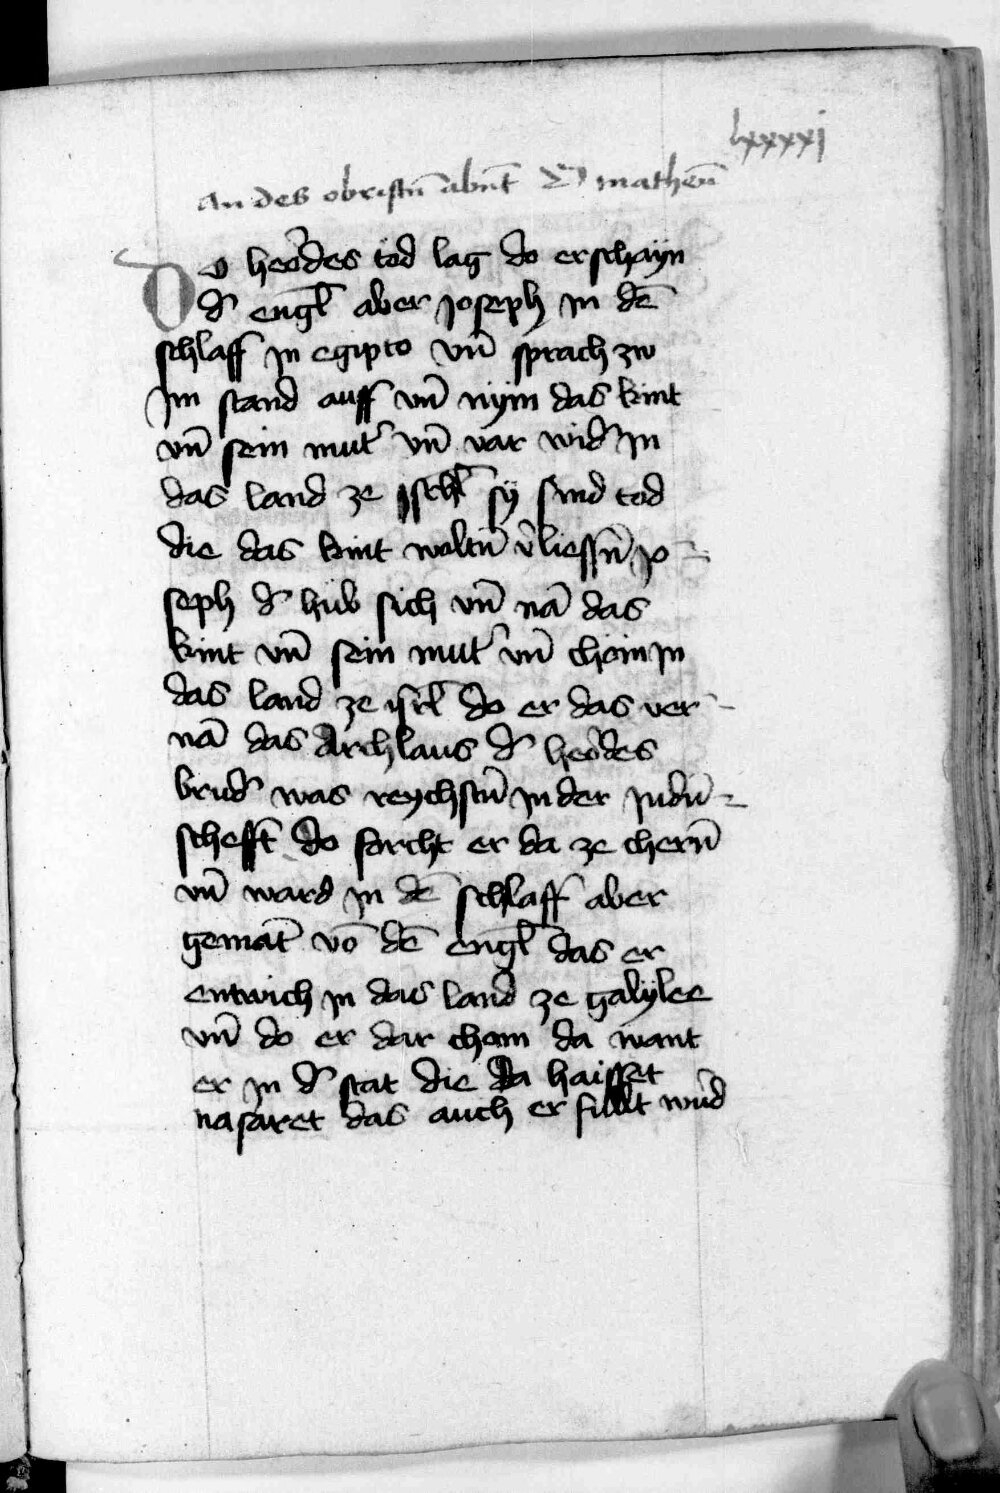 lxxxxj
An des obristn̄ abn̄t S matheū
Do heʳodes tod lag do erschayn
dʳ engl̄ aber Joseph Jn dē
schlaff Jn egipto vn̄ sprach zw
Jm stand auff vn̄ nÿm das kint
vn̄ sein mutʳ vn̄ var widʳ Jn
das land ze Jschl̄ sÿ sind tod
die das kint woltn̄ vʳliessn̄ Jo
seph dʳ hub sich vn̄ nā das
kint vn̄ sein mutʳ vn̄ chom Jn
das land ze isrl̄ do er das ver
nā das Archlaus dʳ heʳodes
brudʳ was reychstn̄ Jn der Judn̄
schefft do forcht er da ze chern̄
vn̄ ward Jn dē schlaff aber
gemāt vō dē engl̄ das er
entwich Jn das land ze galÿlee
vn̄ do er dar chom da want
er Jn dʳ stat die da haisset
nasaret das auch er fullt wʳd